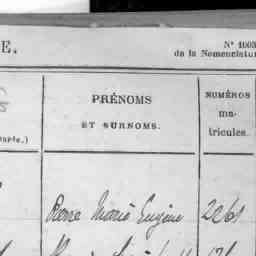 E.
N° 1603
de la Nomenclatur
PRÉNOMS
ET SURNOMS.
NUMÉROS
ma-
tricules.
parte.)
Pierre Marie Eugène 2261